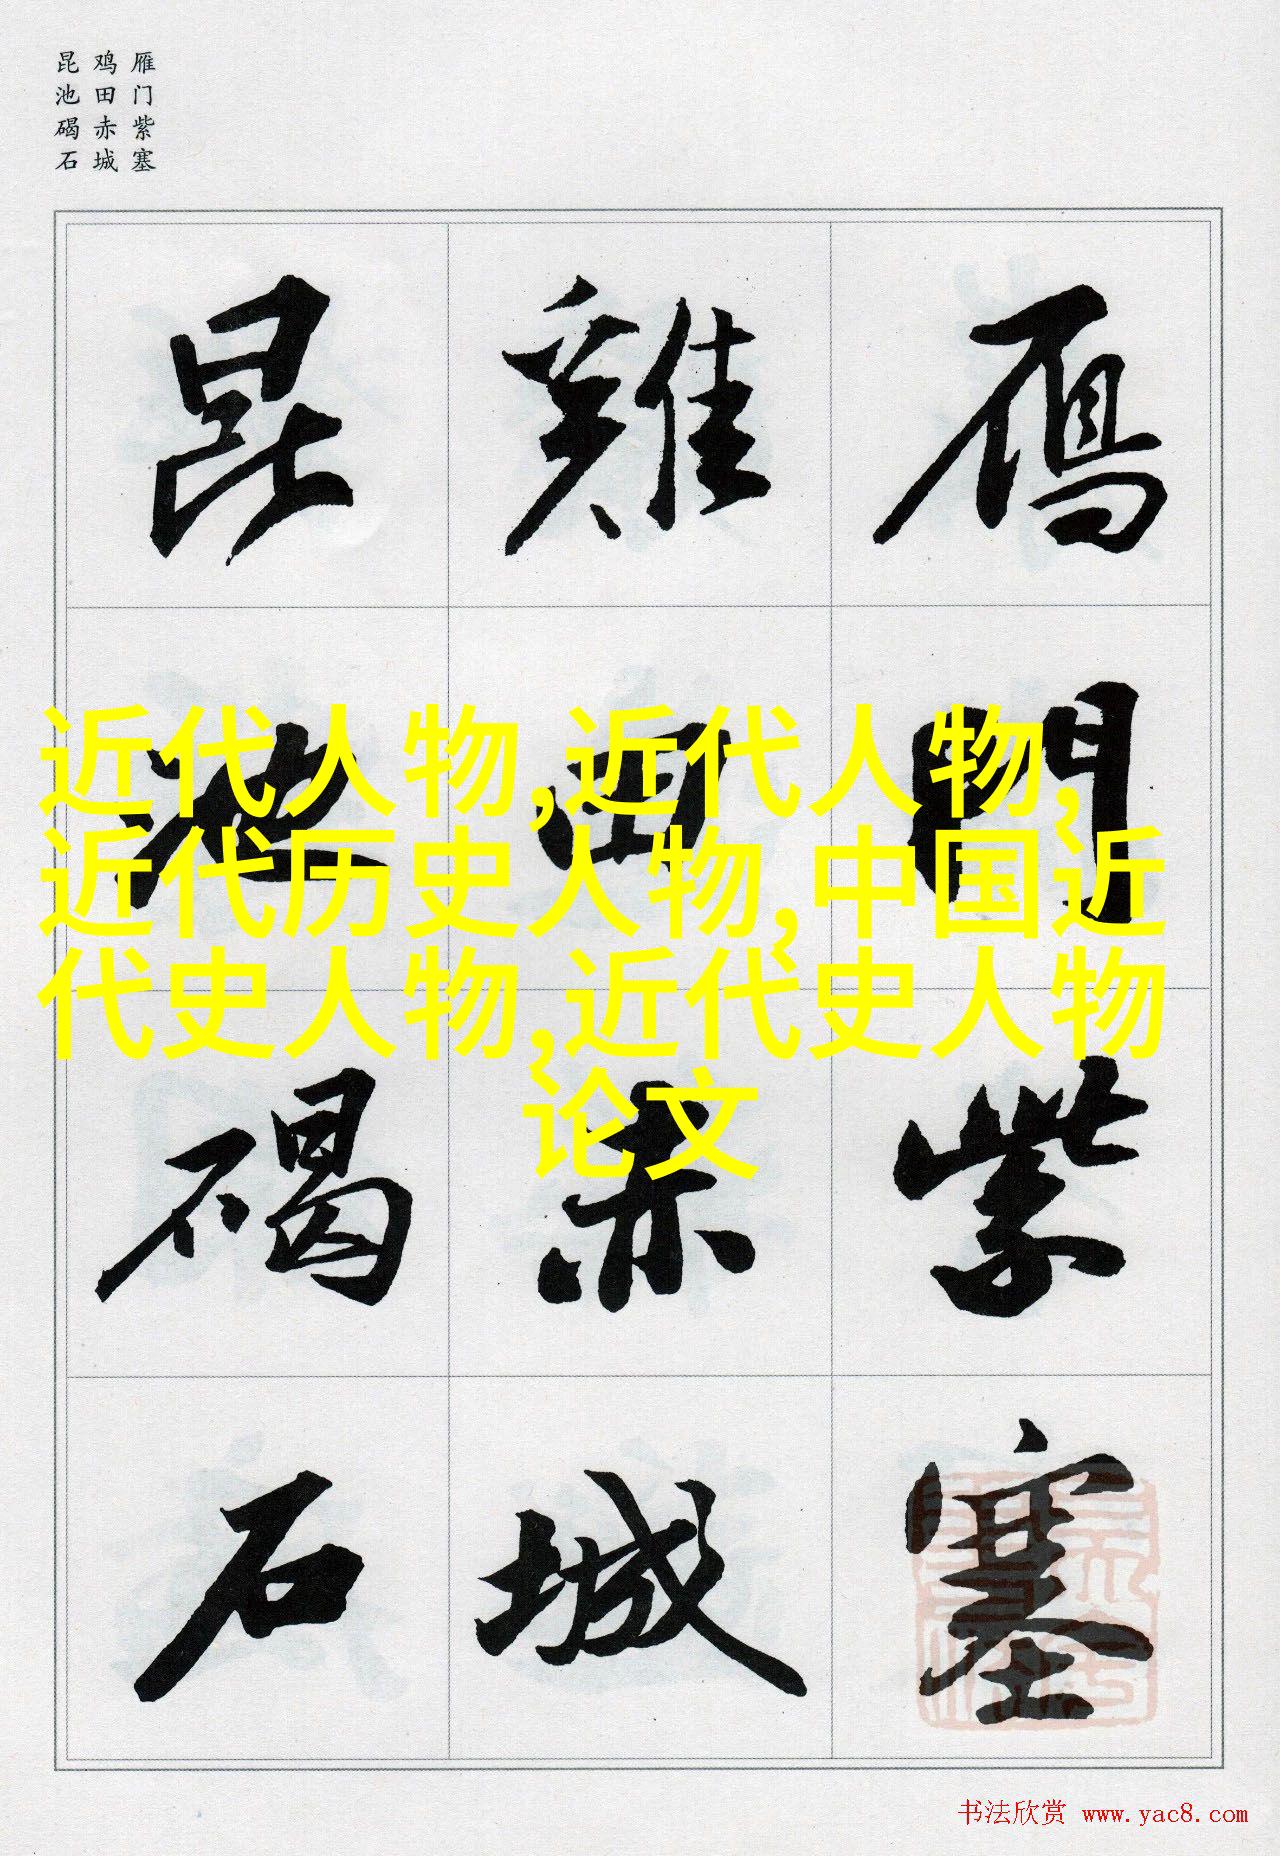 雁门紫塞
鸡田赤城
昆池碣石
鴈門紫塞
雞田赤城
昆池碣石
近代人物,近代人物,
近代历史人物,中国近
代史人物,近代史人物
论文
书法欣赏 www.yac8.com